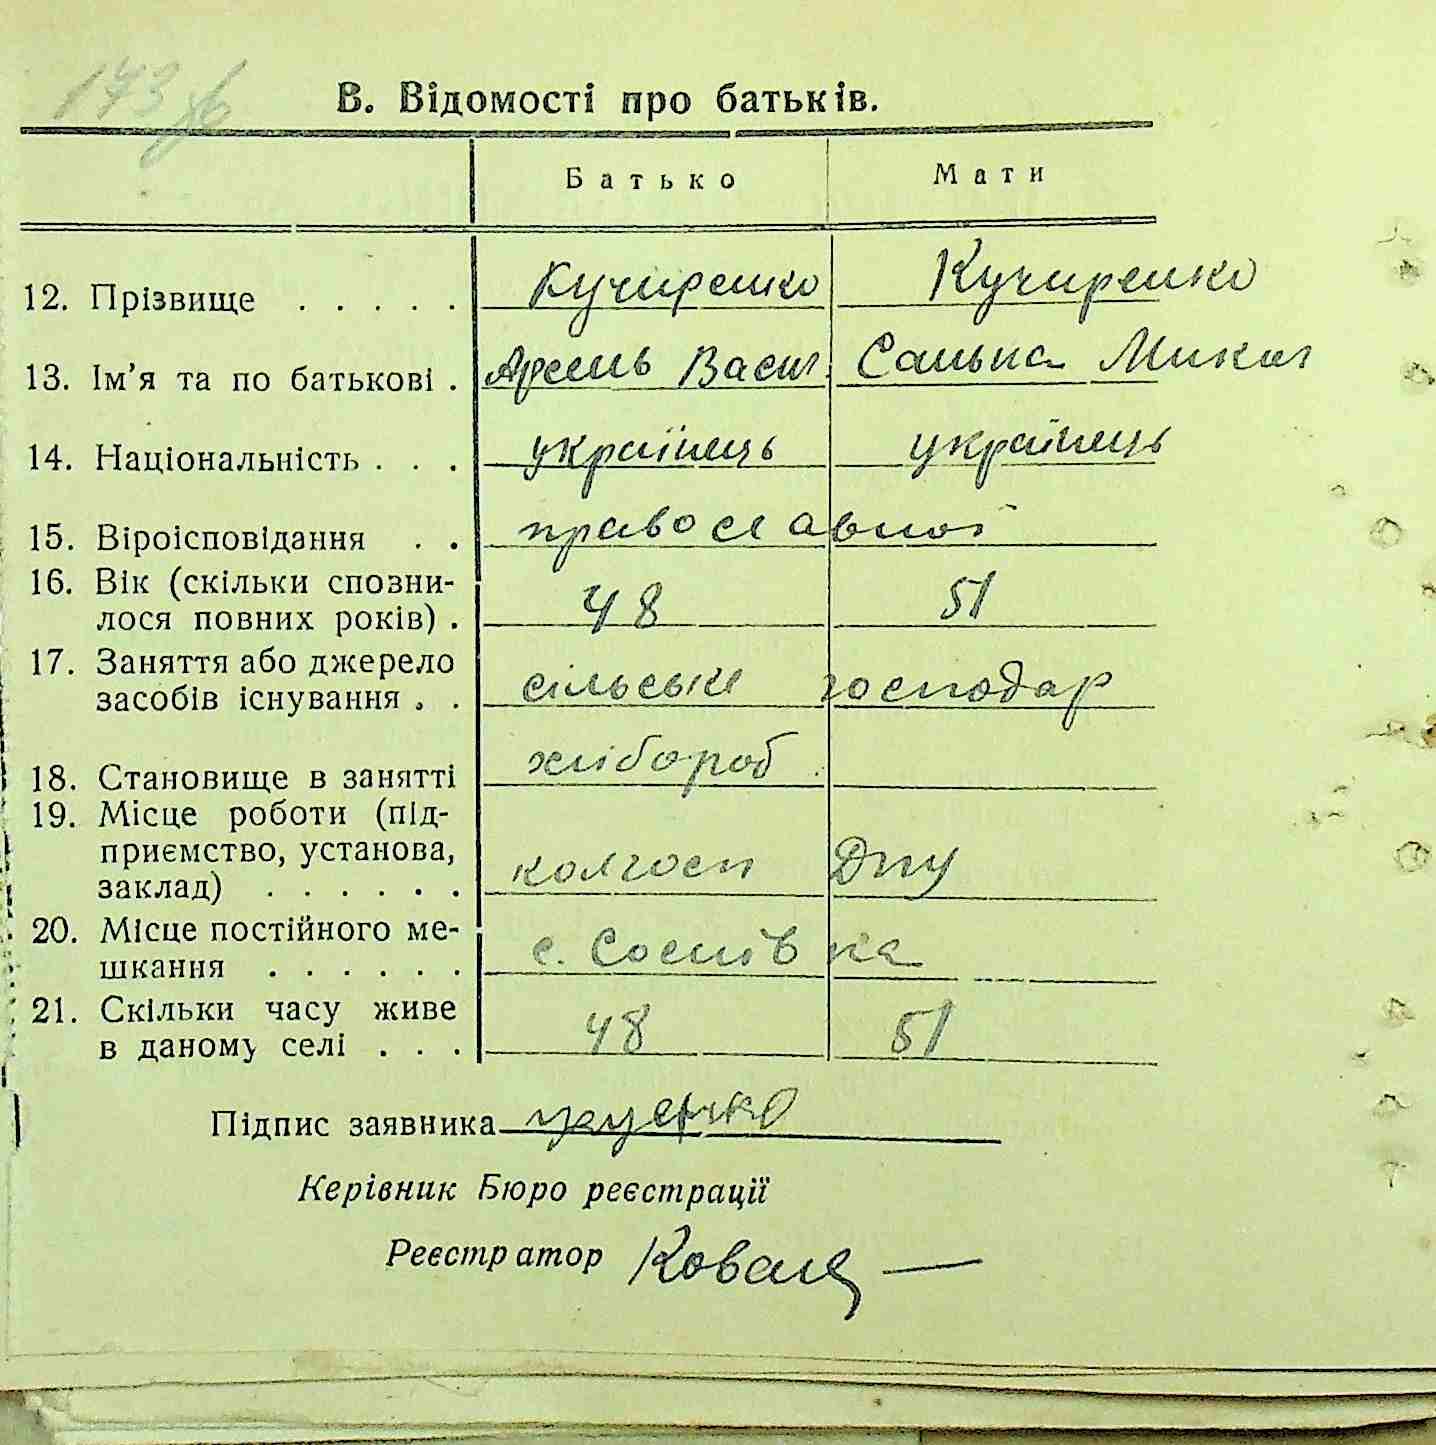 173
В. Відомості про батьків.
Батько Мати
12. Прізвище . . . . . Кучиренко Кучиренко
13. Ім’я та по батькові . Арсень Васил. Санька Микол
14. Національність . . . українець українець
15. Віроісповідання . . православної
16. Вік (скільки спозни-
лося повних років) . 48 51
17. Заняття або джерело
засобів існування . . сільськи господар
18. Становище в занятті хлібороб
19. Місце роботи (під-
приємство, установа,
заклад) . . . . . . колгосп ДПУ
20. Місце постійного ме-
шкання . . . . . . с. Соснівка
21. Скільки часу живе
в даному селі . . . 48 51
Підпис заявника
Керівник Бюро реєстрації
Реєстратор